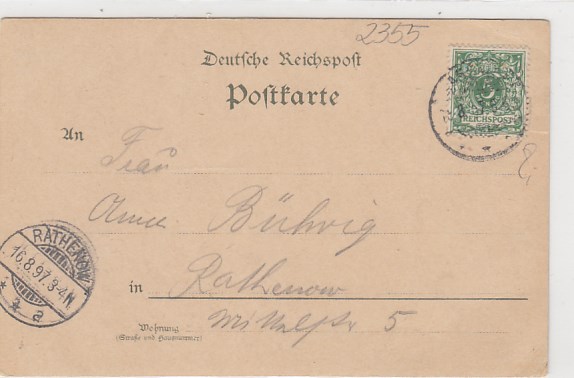 2355
Deutsche Reichspost
Postkarte
5
REICHSPOST
An
Frau
Anna Bührig
RATHENOW
16.8.97.3-4N
* * a
in Rathenow
Wohnung
(Straße und Hausnummer)
Mittelstr 5